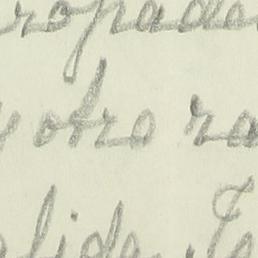 ropade
y otro ra
alida. Te